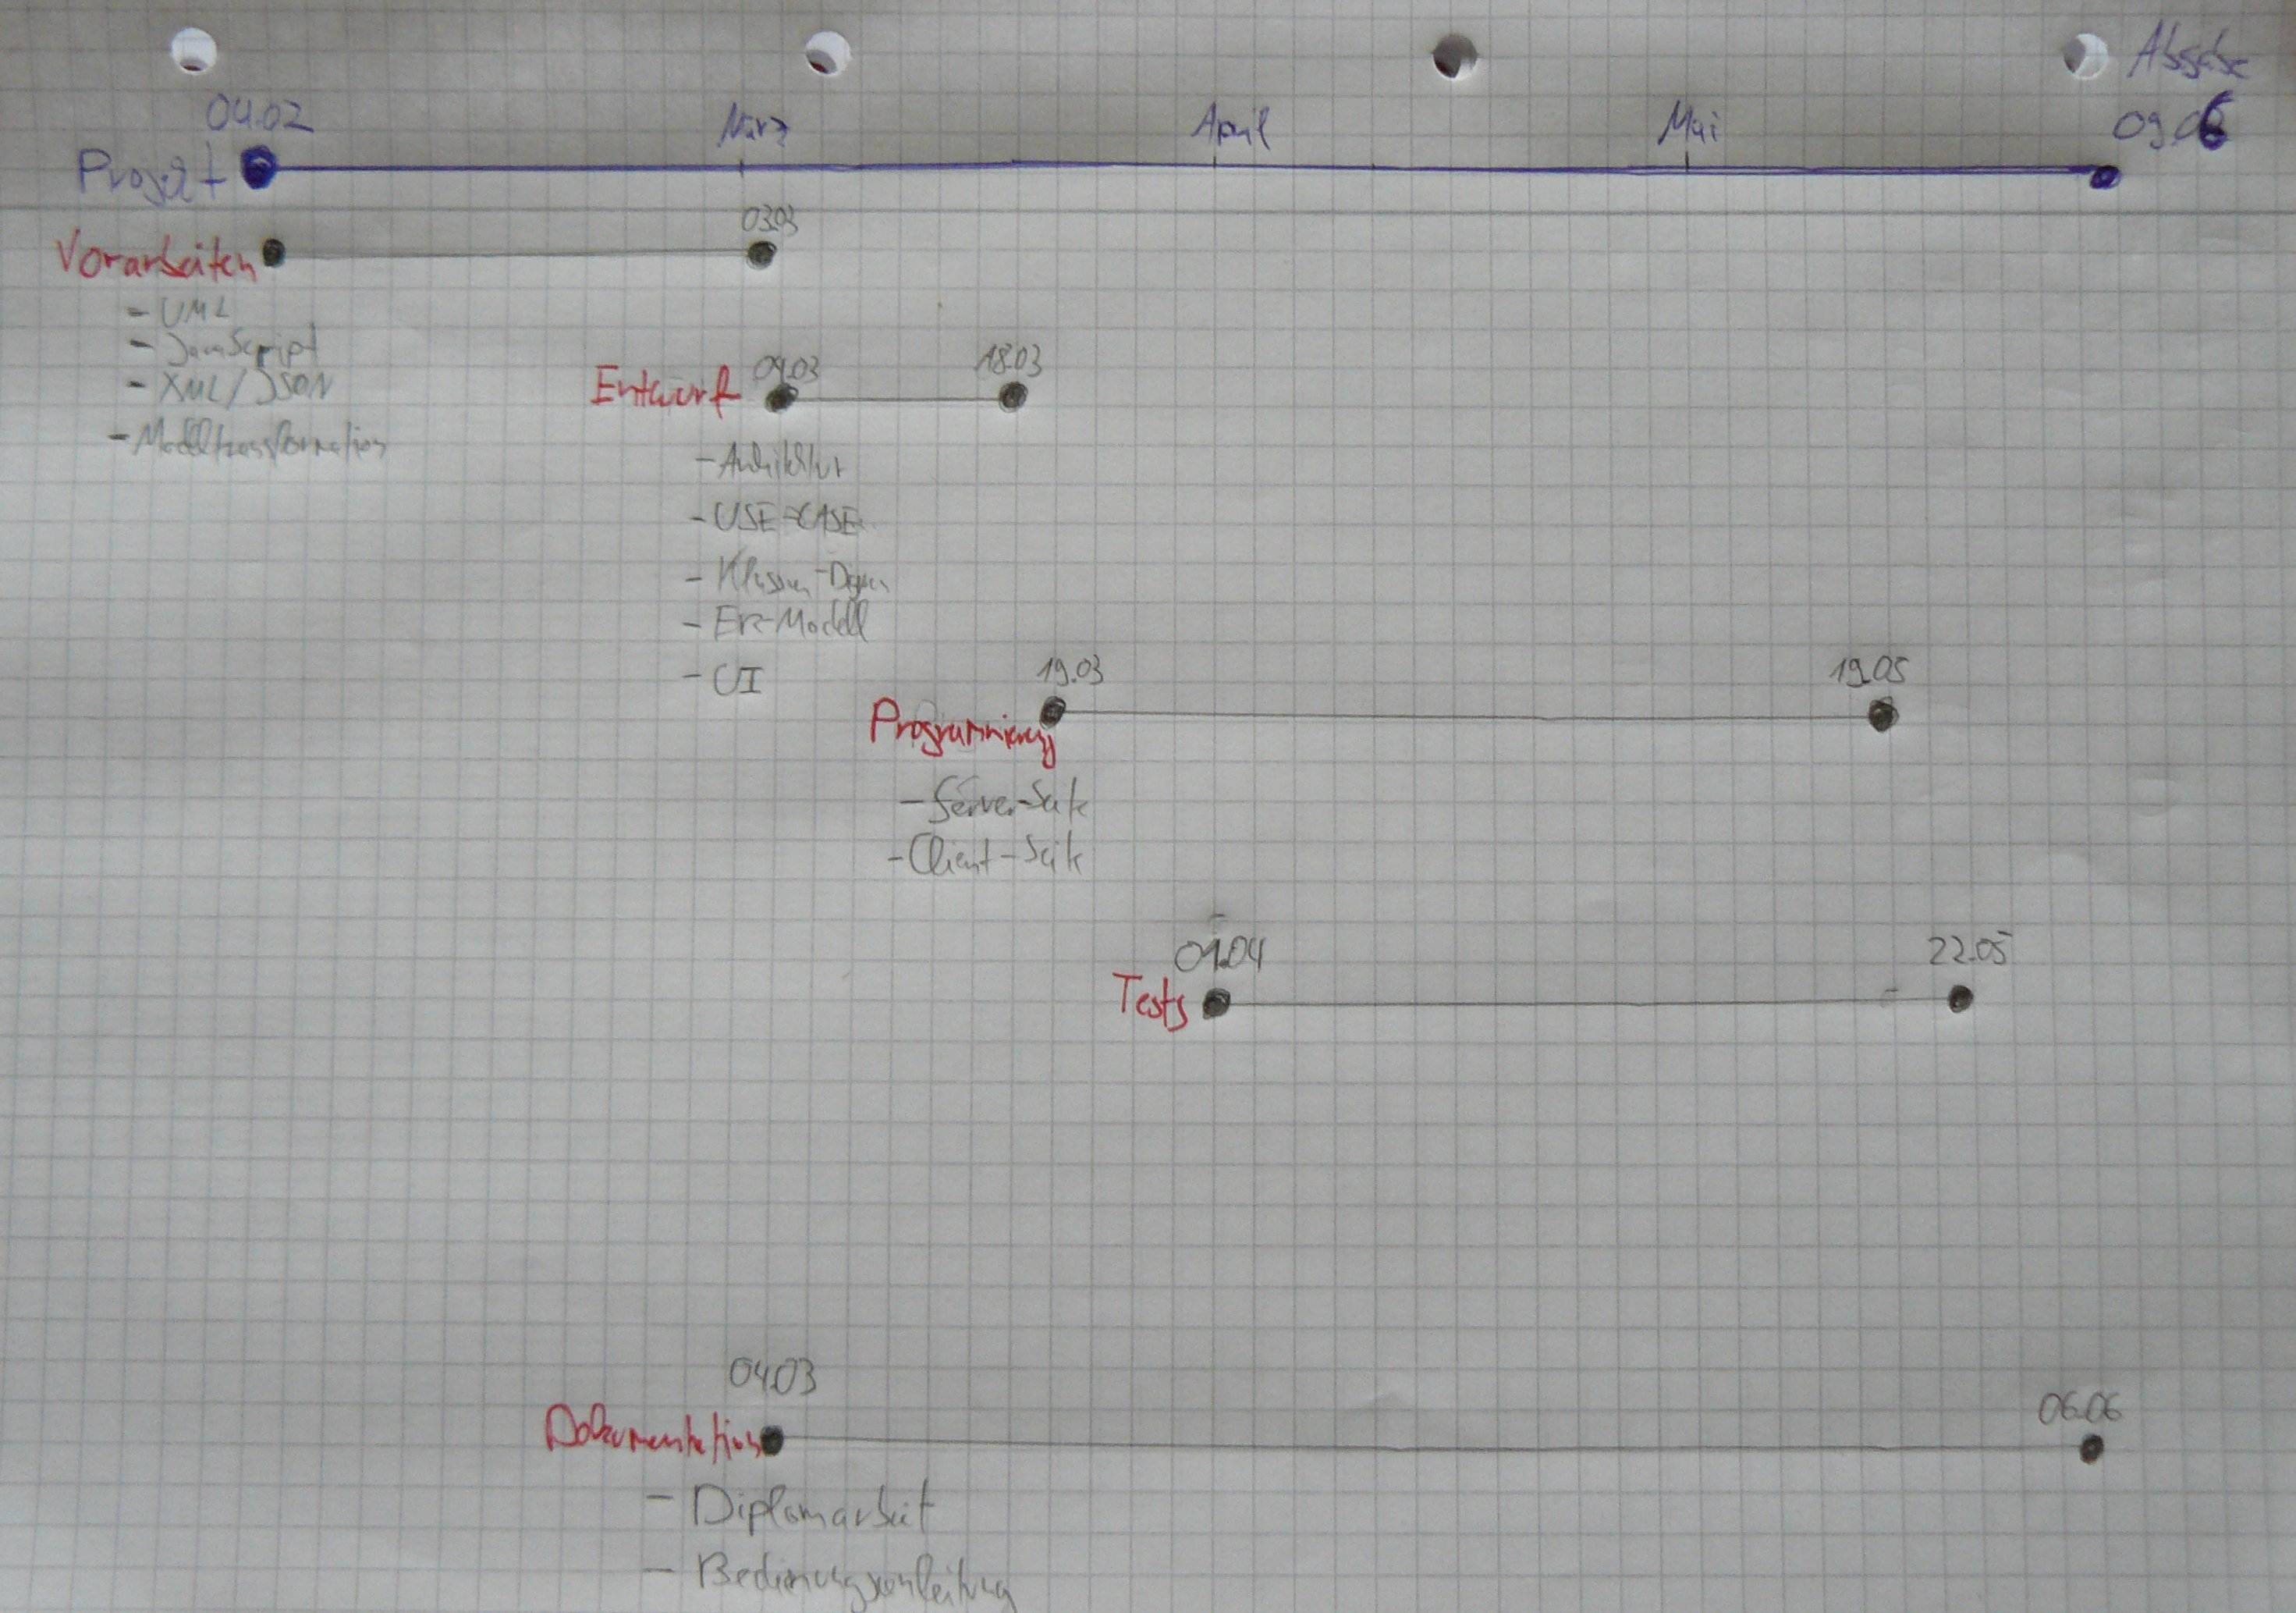 Abgabe
04.02 März April Mai 09.06
Projekt
03.03
Vorarbeiten
- UML
- JavaScript
- XML/JSON
- Modelltransformation
04.03 18.03
Entwurf
- Architektur
- USE-CASE
- Klassen-Dgm
- ER-Modell
- UI
19.03 19.05
Programmierung
- Server-Seite
- Client-Seite
01.04 22.05
Tests
04.03 06.06
Dokumentation
- Diplomarbeit
- Bedienungsanleitung